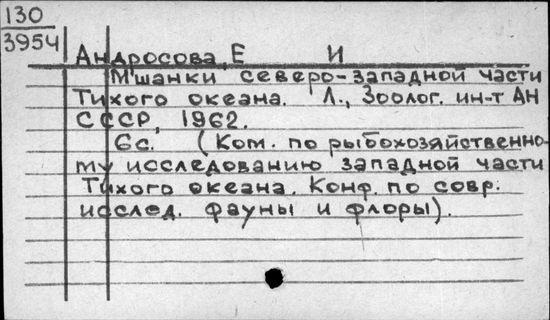 130
3954
Андросова, Е И
Мшанки северо-западной части
Тихого океана. Л., Зоолог. ин-т АН
СССР, 1962.
6с. (Ком. по рыбохозяйственно-
му исследованию западной части
Тихого океана. Конф. по совр.
исслед. фауны и флоры).